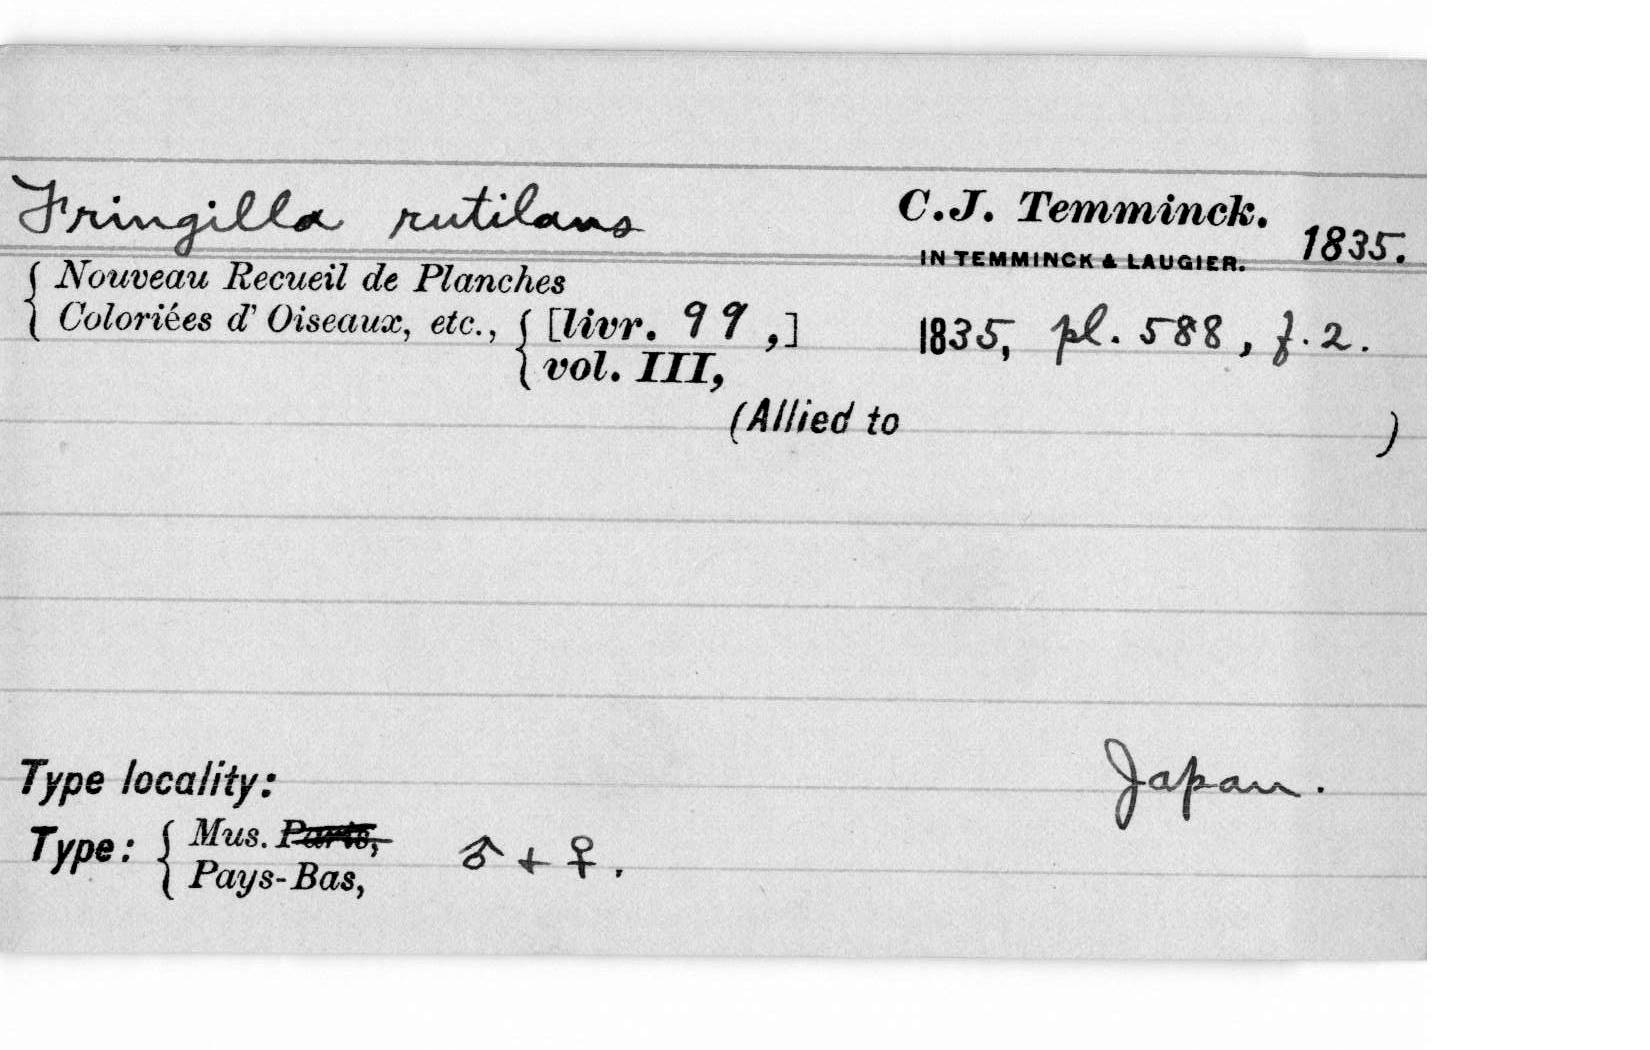 Fringilla rutilans C.J. Temminck.
IN TEMMINCK & LAUGIER. 1835.
{ Nouveau Recueil de Planches
Coloriées d' Oiseaux, etc., { [livr. 99,] 1835, pl. 588, f. 2.
vol. III,
(Allied to )
Type locality: Japan.
Type: { Mus. Paris, ♂ + ♀.
Pays-Bas,